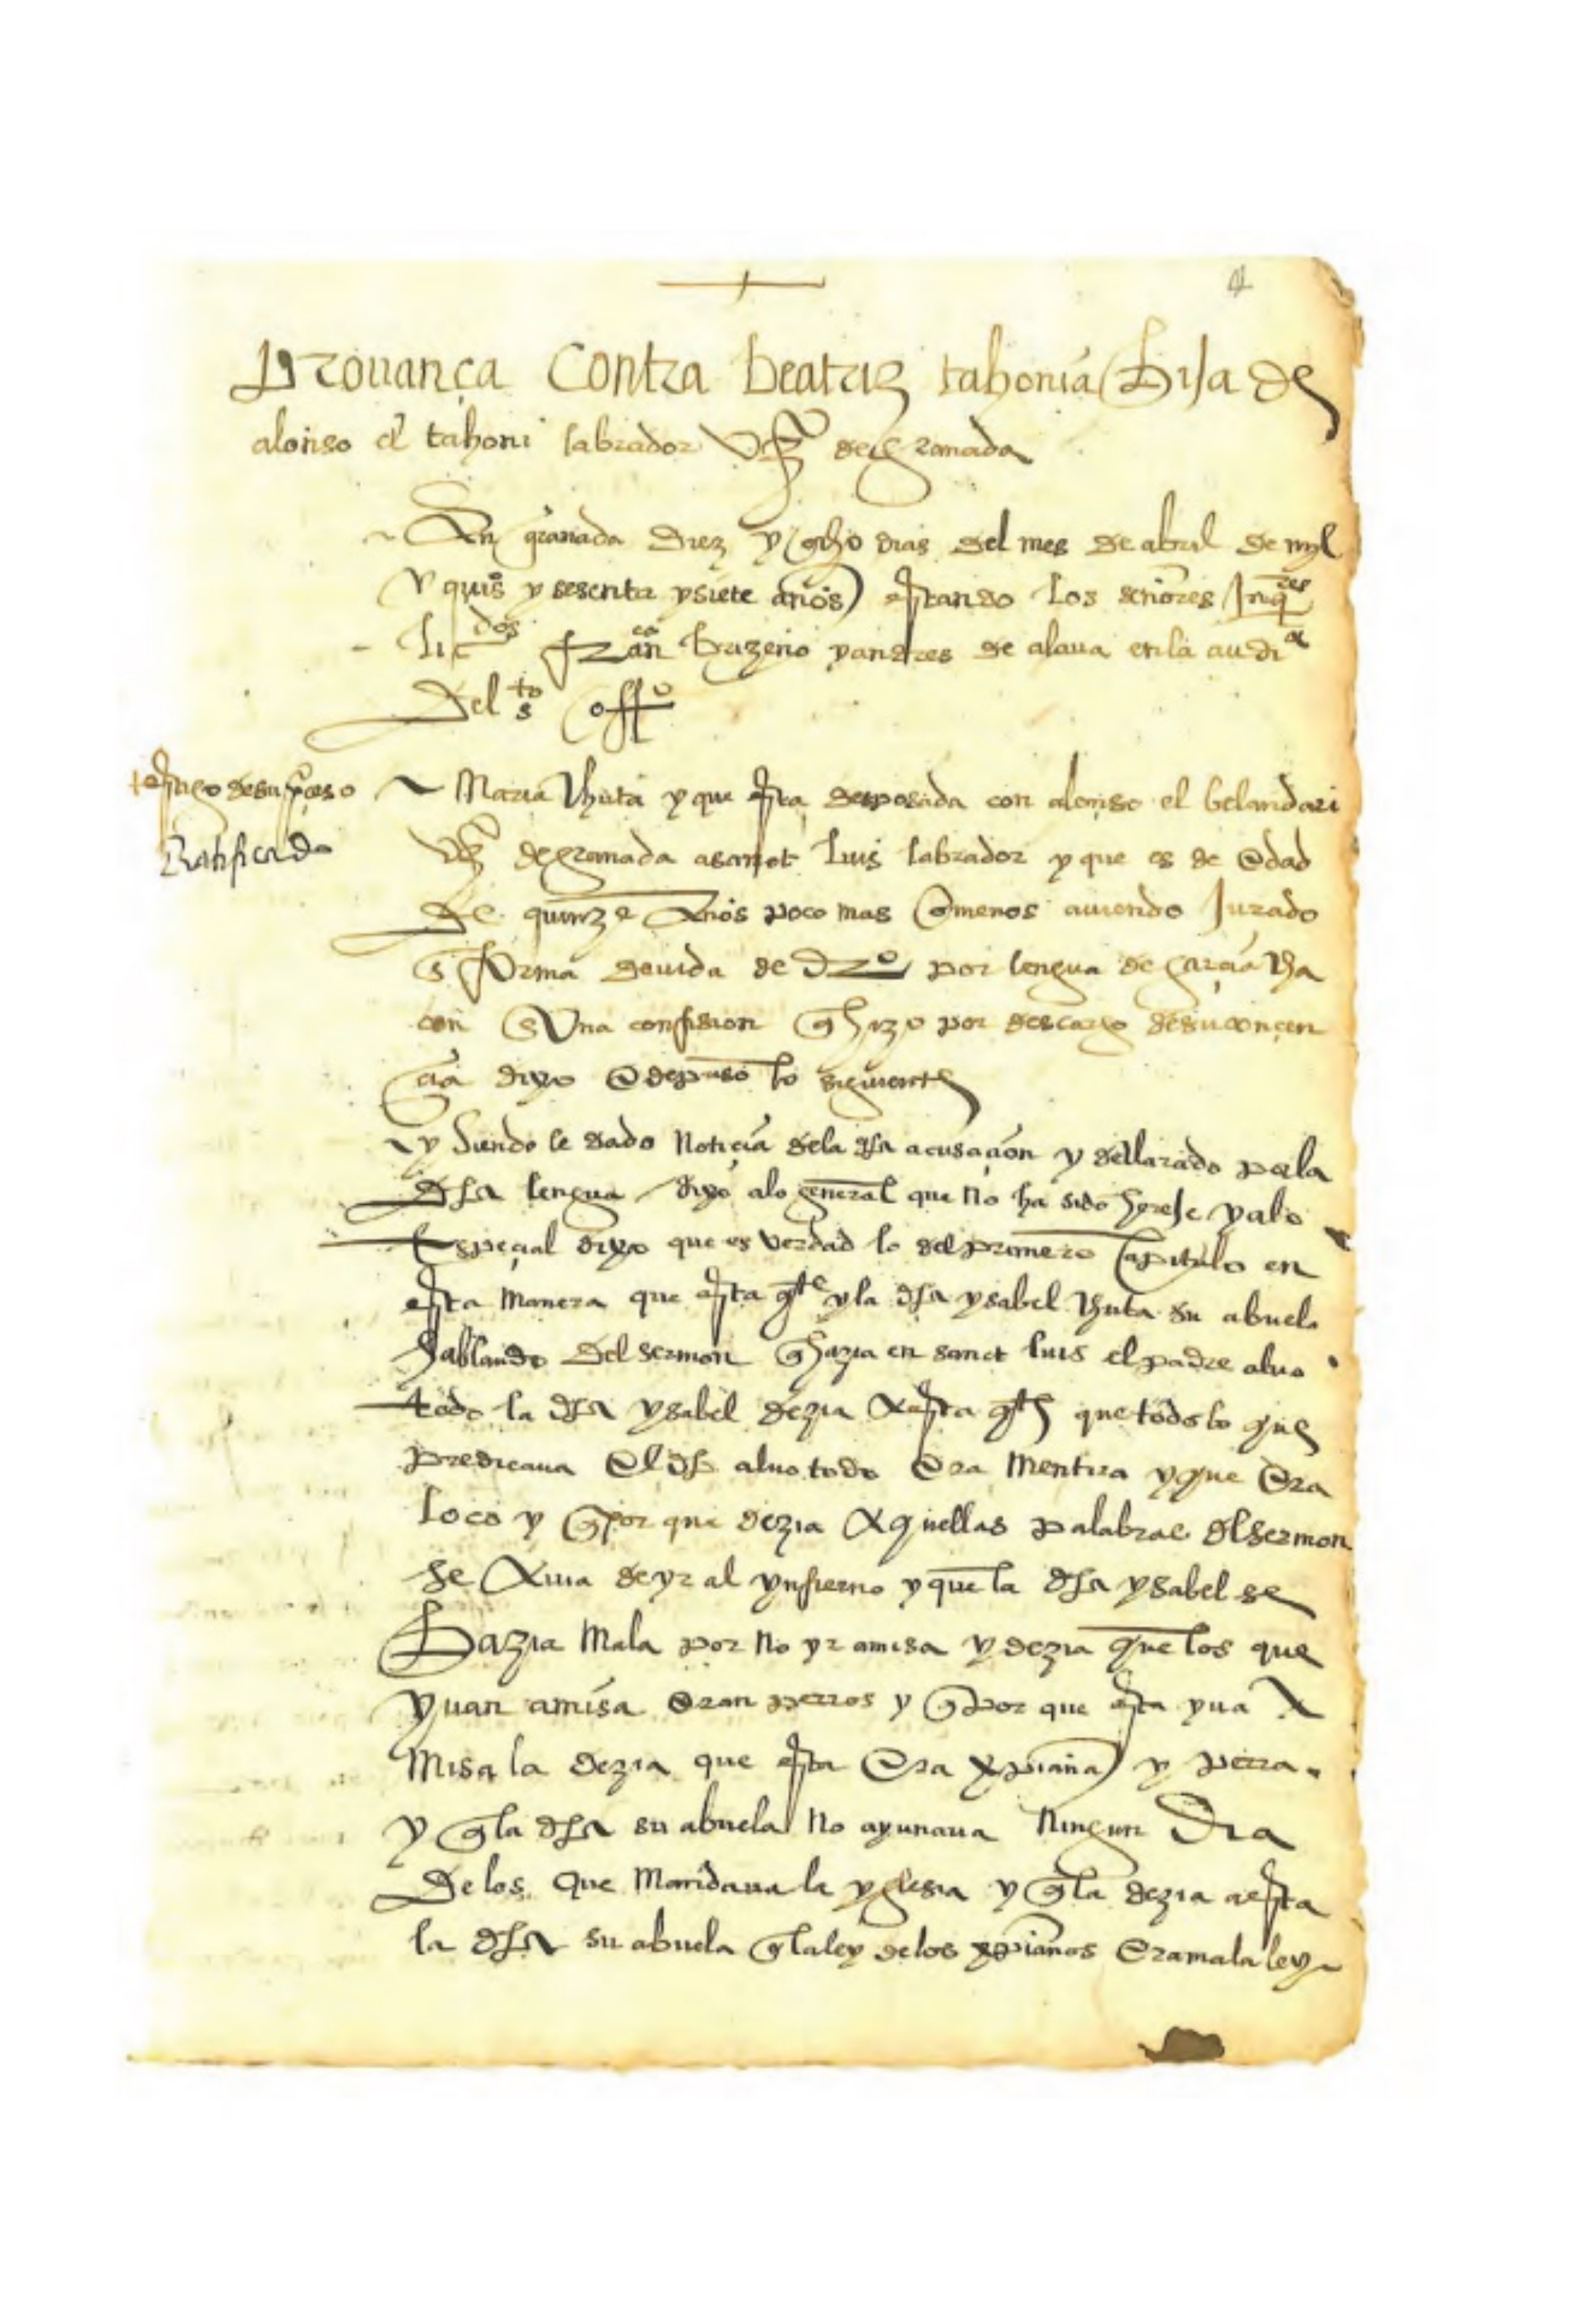 4
Prouança Contra beatriz tahonia Hija de
alonso el tahoni labrador vzº de granada
En granada Diez y ocho dias del mes de abril de myl
y quiºs y sesenta y siete años estando los señores Inqres
licdos franco brizeño y andres de alaua en la audia
Del sto offº
testigo de su proceso
Ratificado
Maria Thuta y que esta desposada con alonso el belandari
vzº de granada a sanct Luis labrador y que es de edad
de quinze años poco mas o menos auiendo Jurado
en forma deuida de Drº por lengua de garcia cha
con en Una confision q hizo por descargo de su concen
cia dixo e depuso lo siguiente
y siendo le dado Noticia de la dha acusaçion y declarado por la
dha lengua dixo a lo general que no ha sido hereje y a lo
Espeçial dixo que es verdad lo del primero Capitulo en
esta manera que esta qte y la dha ysabel Thuta su abuela
hablando Del sermon q hazia en sanct luis el padre aluo
todo la dha ysabel dezia a esta qte que todo lo que
predicaua El dho aluo todo Era mentira y que Era
loco y q por que dezia aquellas palabras del sermon
se auia de yr al ynfierno y que la dha ysabel se
Hazia mala por no yr a misa y dezia que los que
yuan a misa Eran perros y q por que esta yua a
misa la dezia que esta Era xpiana y perra
y q la dha su abuela No ayunaua Ningun Dia
De los que mandaua la yglesia y q la dezia a esta
la dha su abuela q la ley de los xpianos Era mala ley